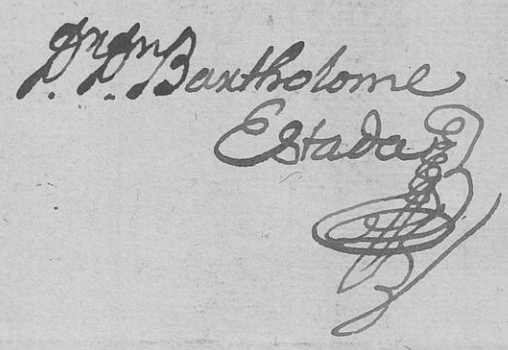 Bartholome
Estada